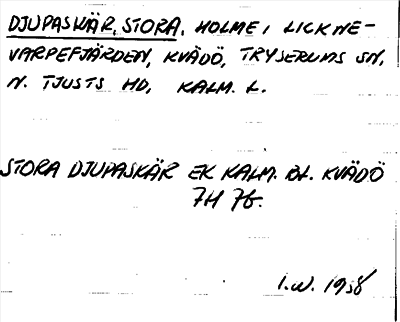 DJUPASKÄR, STORA. HOLME I LICKNE-
VARPEFJÄRDEN, KVÄDÖ, TRYSERUMS SN,
N. TJUSTS HD, KALM. L.
STORA DJUPASKÄR EK KALM. BL. KVÄDÖ
7H 7G.
I.W. 1938